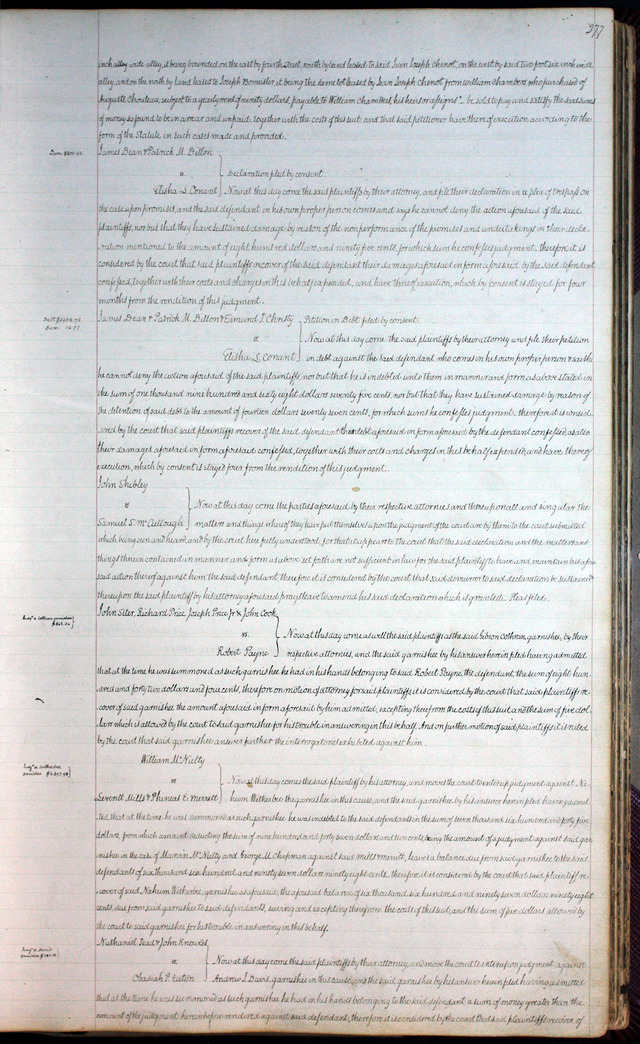 377
inch alley wide alley, it being bounded on the east by fourth street, south by land leased to said Jean Joseph Chenot, on the west by said two foot six inch wide
alley, and on the north by land leased to Joseph Bomeisler, it being the same lot leased by Jean Joseph Chenot, from William Chambers who purchased of
Auguste Chouteau, subject to a yearly rent of ninety dollars, payable to William Chambers, his heirs or assigns - be sold to pay and satisfy the said sums
of money so found to be in arrear and unpaid, together with the cost of this suit, and that said petitioner have thereof execution according to the
form of the Statute in such cases made and provided.
James Dean & Patrick M. Dillon
vs Declaration filed by consent
Elisha L. Conant Now at this day come the said plaintiffs by their attorney, and file their declaration in a plea of trespass on
the case upon promises, and the said defendant in his own proper person comes and says he cannot deny the action aforesaid of the said
plaintiffs, nor but that they have sustained damage by reason of the non performance of the promises and undertakings in their decla-
ration mentioned to the amount of eight hundred dollars and ninety five cents, for which sum he confesses judgment. therefore it is
considered by the court that said plaintiffs recover of the said defendant their damages aforesaid in form aforesaid by the said defendant
confessed, together with their costs and charges in this behalf expended, and have thereof execution, which by consent is stayed for four
months from the rendition of this judgment.
James Dean & Patrick M. Dillon & Edmund T. Christy Petition in Debt filed by consent.
vs Now at this day come the said plaintiffs by their attorney and file their petition
Elisha L. Conant in debt against the said defendant who comes in his own proper person & saith
he cannot deny the action aforesaid of the said plaintiffs, nor but that he is indebted unto them in manner and form as above stated in
the sum of one thousand nine hundred and sixty eight dollars seventy five cents, nor but that they have sustained damage by reason of
the detention of said debt to the amount of fourteen dollars seventy seven cents, for which sums he confesses judgment. therefore it is consid-
ered by the court that said plaintiffs recover of the said defendant their debt aforesaid in form aforesaid by the defendant confessed, as also
their damages aforesaid in form aforesaid confessed, together with their costs and charges in this behalf expended, and have thereof
execution, which by consent is stayed four from the rendition of this judgment.
John Shibley
vs Now at this day come the parties aforesaid by their respective attornies and thereupon all and singular the
Samuel S. McCullough matters and things whereof they have put themselves upon the judgment of the court are by them to the court submitted
which being seen and heard, and by the court here fully understood, for that it appears to the court that the said declaration and the matters and
things therein contained in manner and form as above set forth are not sufficient in law for the said plaintiff to have and maintain his afore-
said action thereof against him the said defendant, therefore it is considered by the court that said demurrer to said declaration be sustained
thereupon the said plaintiff by his attorney aforesaid prays leave to amend his said declaration which is granted. Pleas filed.
John Siter, Richard Price Joseph Price Jr & John Cook
vs. Now at this day come as well the said plaintiffs as the said garnishee, by their
Robert Payne respective attornies, and the said garnishee by his answer herein filed having admitted
that at the time he was summoned as such garnishee he had in his hands belonging to said Robert Payne, the defendant, the sum of eight hun-
dred and forty two dollars and four cents, therefore on motion of attorney for said plaintiffs it is considered by the court that said plaintiffs re-
cover of said garnishee the amount aforesaid in form aforesaid by him admitted, excepting therefrom the costs of this suit, and the sum of five dol-
lars which is allowed by the court to said garnishee for his trouble in answering in this behalf. And on further motion of said plaintiffs it is ruled
by the court that said garnishee answer further the interrogatories exhibited against him.
William McNulty
vs Now at this day comes the said plaintiff by his attorney, and moves the court to enter up judgment against Na-
Leveritt Mills & Phineas E. Merrett hum Witherbee the garnishee in this cause, and the said garnishee by his answer herein filed having admit-
ted that at the time he was summoned as such garnishee he was indebted to the said defendants in the sum of seven thousand six hundred and forty five
dollars, from which amount deducting the sum of nine hundred and forty seven dollars and two cents being the amount of a judgment against said gar-
nishee in the case of McNulty and George M. Chapman against said Mills & Merrett, leaves a balance due from said garnishee to the said
defendants of six thousand six hundred and ninety seven dollars ninety eight cents. therefore it is considered by the court that said plaintiff re-
cover of said Nahum Witherbee, garnishee as aforesaid, the aforesaid balance of six thousand six hundred and ninety seven dollars ninety eight
cents, due from said garnishee to said defendants, saving and excepting therefrom the costs of this suit, and the sum of five dollars allowed by
the court to said garnishee for his trouble in answering in this behalf.
Nathaniel Tead & John Knowls
vs Now at this day come the said plaintiffs by their attorney, and move the court to enter up judgment against
Obadiah P. Eaton Andrew J. Davis, garnishee in this cause, and the said garnishee by his answer herein filed having admitted
that at the time he was summoned as such garnishee he had in his hands belonging to the said defendant a sum of money greater than the
amount of the judgment heretofore rendered against said defendant, therefore it is considered by the court that said plaintiffs recover of